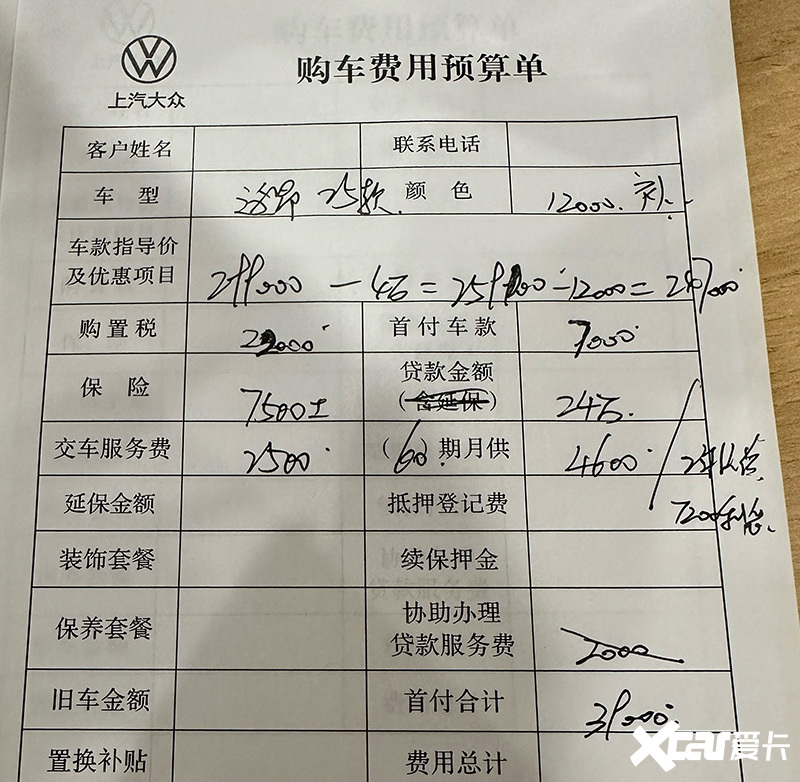 购车费用预算单
上汽大众
客户姓名 联系电话
车 型 途昂 25款 颜 色 12000.
车款指导价
及优惠项目 299000 - 4万 = 259000 - 12000 = 247000
购置税 22000 首付车款 7000
保 险 7500± 贷款金额
(含延保) 24万
交车服务费 2500 (60)期月供 4600
延保金额 抵押登记费
装饰套餐 续保押金
保养套餐 协助办理
贷款服务费 2000
旧车金额 首付合计 39000
置换补贴 费用总计
Xcar爱卡